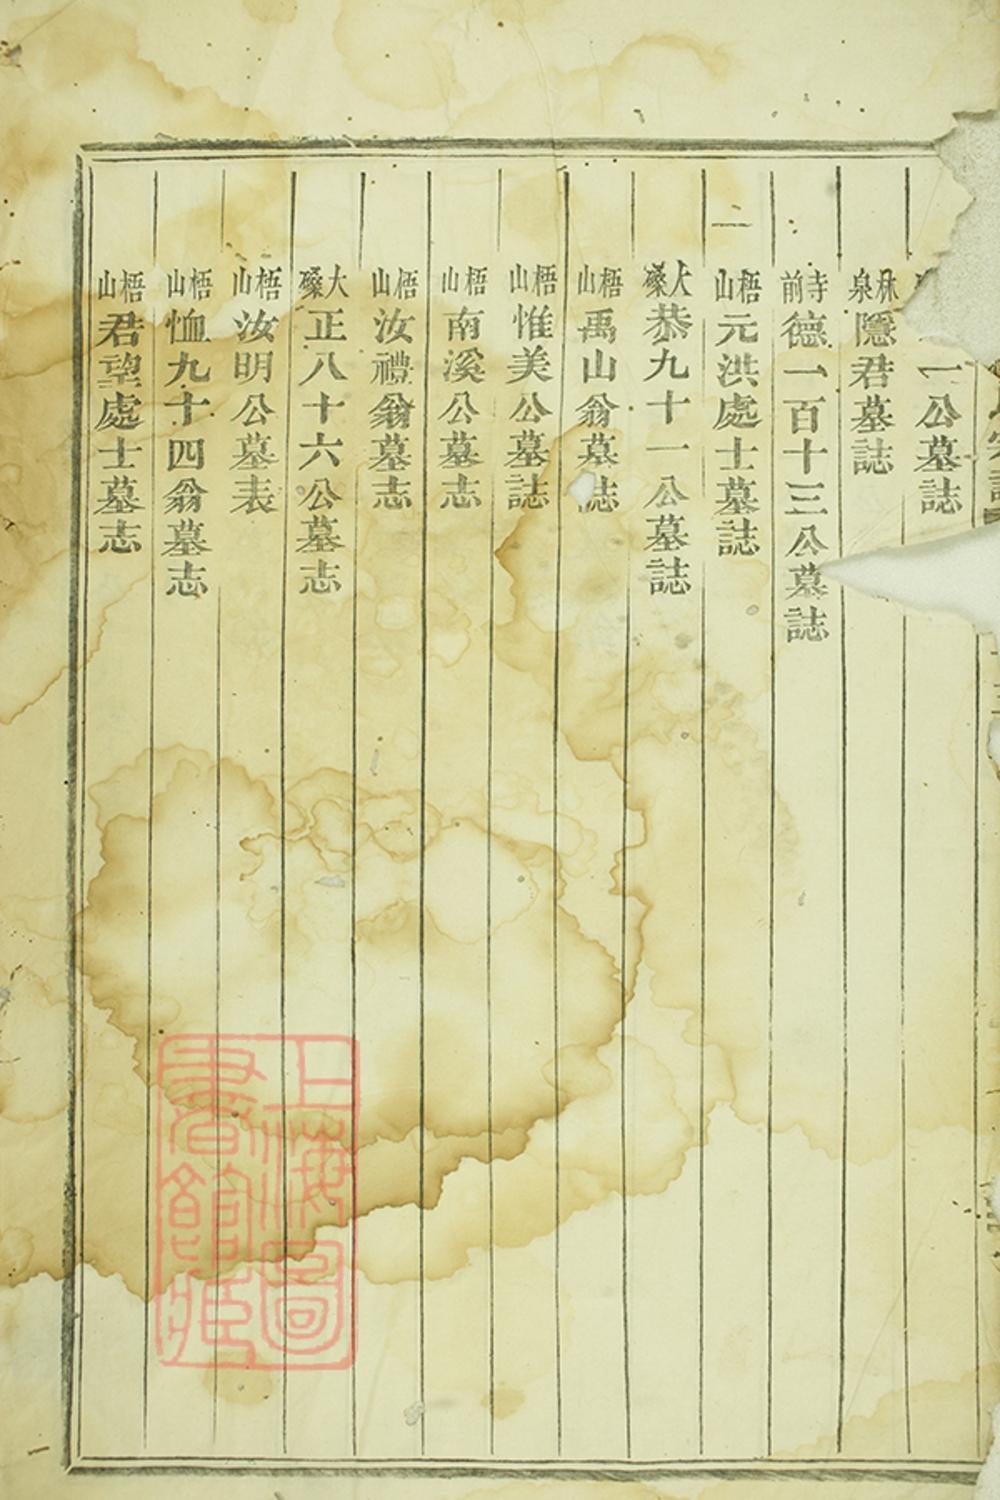 一公墓誌
林泉隱君墓誌
寺前德一百十三公墓誌
梧山元洪處士墓誌
大𥕢恭九十一公墓誌
梧山禹山翁墓誌
梧山惟美公墓誌
梧山南溪公墓志
梧山汝禮翁墓志
大𥕢正八十六公墓志
梧山汝明公墓表
梧山恤九十四翁墓志
梧山君望處士墓志
上海圖書館藏